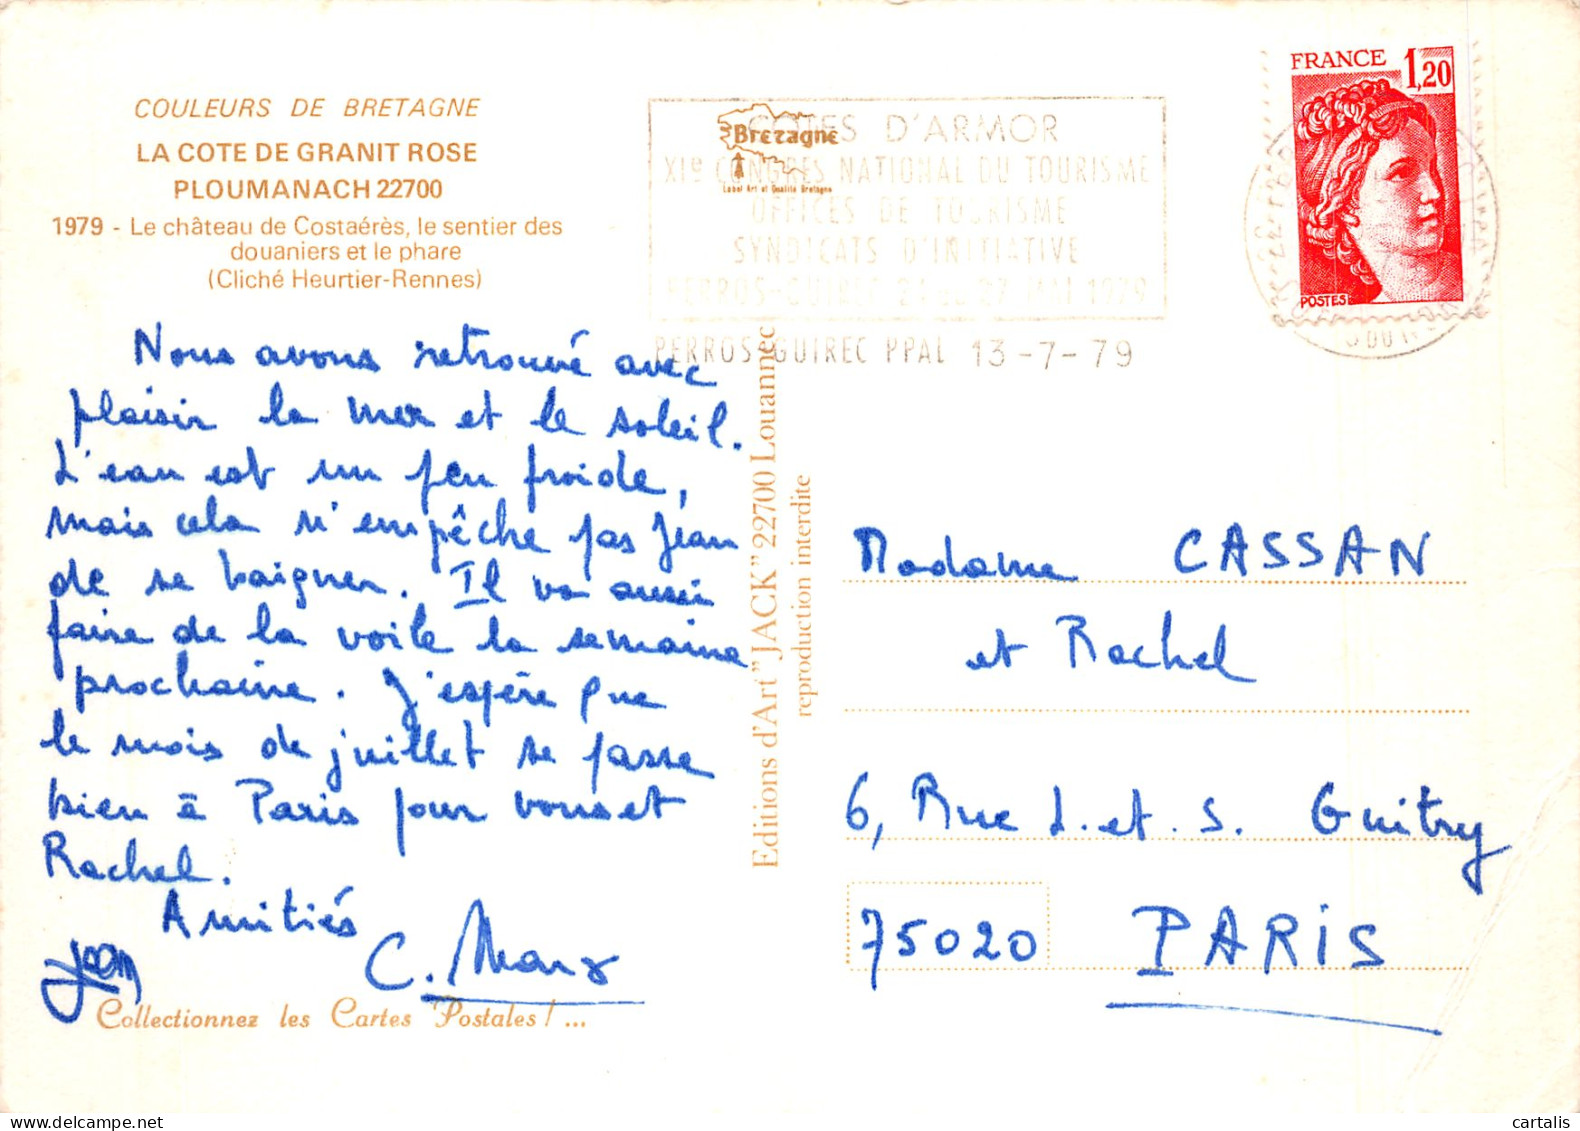 COULEURS DE BRETAGNE
LA COTE DE GRANIT ROSE
PLOUMANACH 22700
1979 - Le château de Costaérès, le sentier des
douaniers et le phare
(Cliché Heurtier-Rennes)
Nous avons retrouvé avec
plaisir la mer et le soleil.
L'eau est un peu froide,
mais cela n'empêche pas Jean
de se baigner. Il va aussi
faire de la voile la semaine
prochaine. J'espère que
le mois de juillet se passe
bien à Paris pour vous et
Rachel.
Amitiés
Jean
C.
Collectionnez les Cartes Postales ! ...
Editions d'Art "JACK" 22700 Louannec
reproduction interdite
Bretagne
Label Art et Qualité Bretagne
COTES D'ARMOR
XIe CONGRES NATIONAL DU TOURISME
OFFICES DE TOURISME
SYNDICATS D'INITIATIVE
PERROS-GUIREC 21 au 27 MAI 1979
PERROS-GUIREC PPAL 13-7-79
FRANCE 1,20
POSTES
Madame CASSAN
et Rachel
6, Rue L. et. S. Guitry
75020 PARIS
cartalis